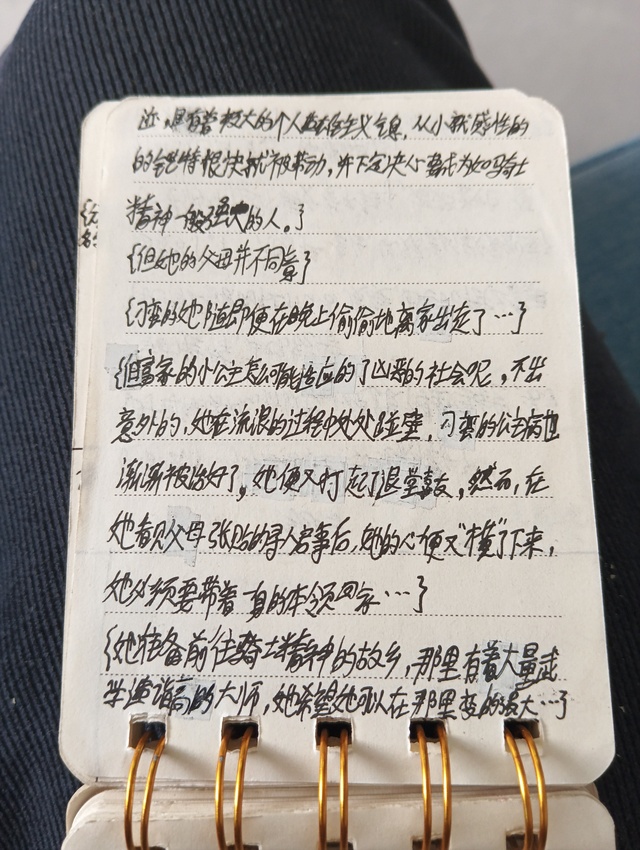 还，具有着极大的个人英雄主义气息，从小就感性的
的鸳特很快就被带动，并下定决心要成为如骑士
精神一般强大的人。}
{但她的父母并不同意}
{刁蛮的她随即便在晚上偷偷地离家出走了…}
{但富家的小公主怎么可能适应的了凶恶的社会呢，不出
意外的，她在流浪的过程中处处碰壁，刁蛮的公主病也
渐渐被治好了，她便又打起了退堂鼓，然而，在
她看见父母张贴的寻人启事后，她的心便又"横"了下来，
她必须要带着一身的本领回家…}
{她准备前往骑士精神的故乡，那里有着大量武
学造诣高的大师，她希望她可以在那里变的强大…}